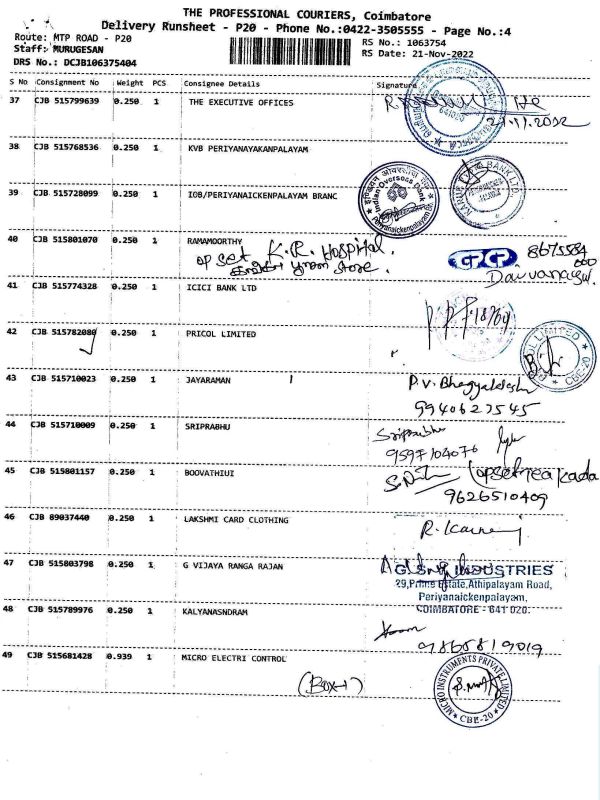 THE PROFESSIONAL COURIERS, Coimbatore
Delivery Runsheet - P20 - Phone No.:0422-3505555 - Page No.:4
Route: MTP ROAD - P20
RS No.: 1063754
Staff: MURUGESAN
RS Date: 21-Nov-2022
DRS No.: DCJB106375404
S No Consignment No Weight PCS Consignee Details Signature
37 CJB 515799639 0.250 1 THE EXECUTIVE OFFICES
21.11.2022
38 CJB 515768536 0.250 1 KVB PERIYANAYAKANPALAYAM
39 CJB 515728099 0.250 1 IOB/PERIYANAICKENPALAYAM BRANC
Indian Overseas Bank
Periyanaickenpalayam
BANK LTD.
40 CJB 515801070 0.250 1 RAMAMOORTHY
op set K.R. Hospital.
store.
8675584
000
41 CJB 515774328 0.250 1 ICICI BANK LTD
42 CJB 515782080 0.250 1 PRICOL LIMITED
LIMITED
CBE-20
43 CJB 515710023 0.250 1 JAYARAMAN
P.V.
9940623545
44 CJB 515710009 0.250 1 SRIPRABHU
Sriprabhu
9597104076
45 CJB 515801157 0.250 1 BOOVATHIUI
9626510409
46 CJB 89037440 0.250 1 LAKSHMI CARD CLOTHING
47 CJB 515803798 0.250 1 G VIJAYA RANGA RAJAN
INDUSTRIES
29,Prime Estate,Athipalayam Road,
Periyanaickenpalayam,
COIMBATORE - 641 020.
48 CJB 515789976 0.250 1 KALYANASNDRAM
9865819019
49 CJB 515681428 0.939 1 MICRO ELECTRI CONTROL
(Box-1)
MICRO INSTRUMENTS PRIVATE LIMITED
CBE-20